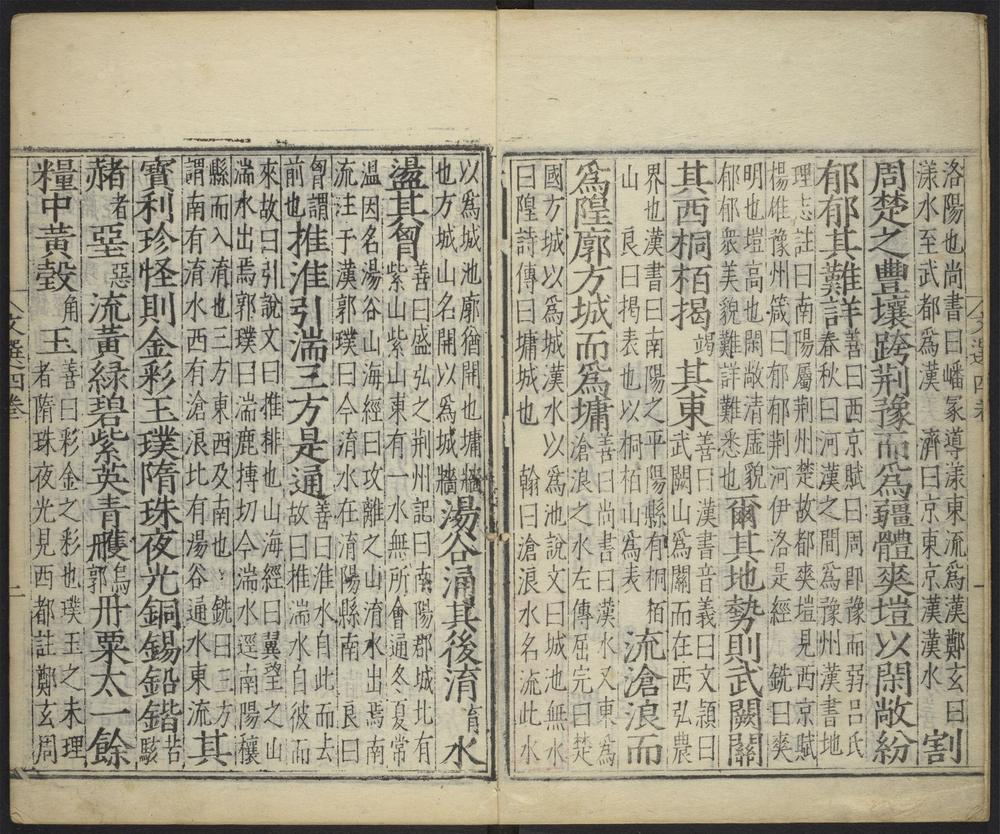 洛陽也尚書曰嶓冢導漾東流爲漢鄭玄曰
漾水至武都爲漢 濟曰京東京漢漢水
割
周楚之豐壤跨荊豫而爲疆體爽塏以閑敞紛
郁郁其難詳
善曰西京賦曰周即豫而弱呂氏
春秋曰河漢之間爲豫州漢書地
理志註曰南陽屬荊州楚故都爽塏見西京賦
楊雄豫州箴曰郁郁荊河伊洛是經 銑曰爽
明也塏高也閑敞清虛貌
郁郁衆美貌難詳難悉也
爾其地勢則武闕關
其西桐栢揭 竭 其東
善曰漢書音義曰文頴曰
武闕山爲關而在西弘農
界也漢書曰南陽之平陽縣有桐栢
山 良曰揭表也以桐栢山爲表
流滄浪而
爲隍廓方城而爲墉
善曰尚書曰漢水又東爲
滄浪之水左傳屈完曰楚
國方城以爲城漢水以爲池說文曰城池無水
曰隍詩傳曰墉城也 翰曰滄浪水名流此水
文選四卷 一
以爲城池廓猶開也墉牆
也方城山名開以爲城牆
湯谷涌其後淯 育 水
盪其胷
善曰盛弘之荊州記曰南陽郡城北有
紫山紫山東有一水無所會通冬夏常
温因名湯谷山海經曰攻離之山淯水出焉南
流注于漢郭璞曰今淯水在淯陽縣南 良曰
胷謂
前也
推淮引湍三方是通
善曰淮水自此而去
故曰推湍水自彼而
來故曰引說文曰推排也山海經曰翼望之山
湍水出焉郭璞曰湍鹿摶切今湍水逕南陽穰
縣而入淯也三方東西及南也 銑曰三方
謂南有淯水西有滄浪北有湯谷通水東流
其
寳利珍怪則金彩玉璞隋珠夜光銅錫鉛鍇 苦駭
赭 者 堊 惡 流黃綠碧紫英青雘 烏郭 丹粟太一餘
糧中黃瑴 角 玉
善曰彩金之彩也璞玉之未理
者隋珠夜光見西都註鄭玄周
文選四卷 二